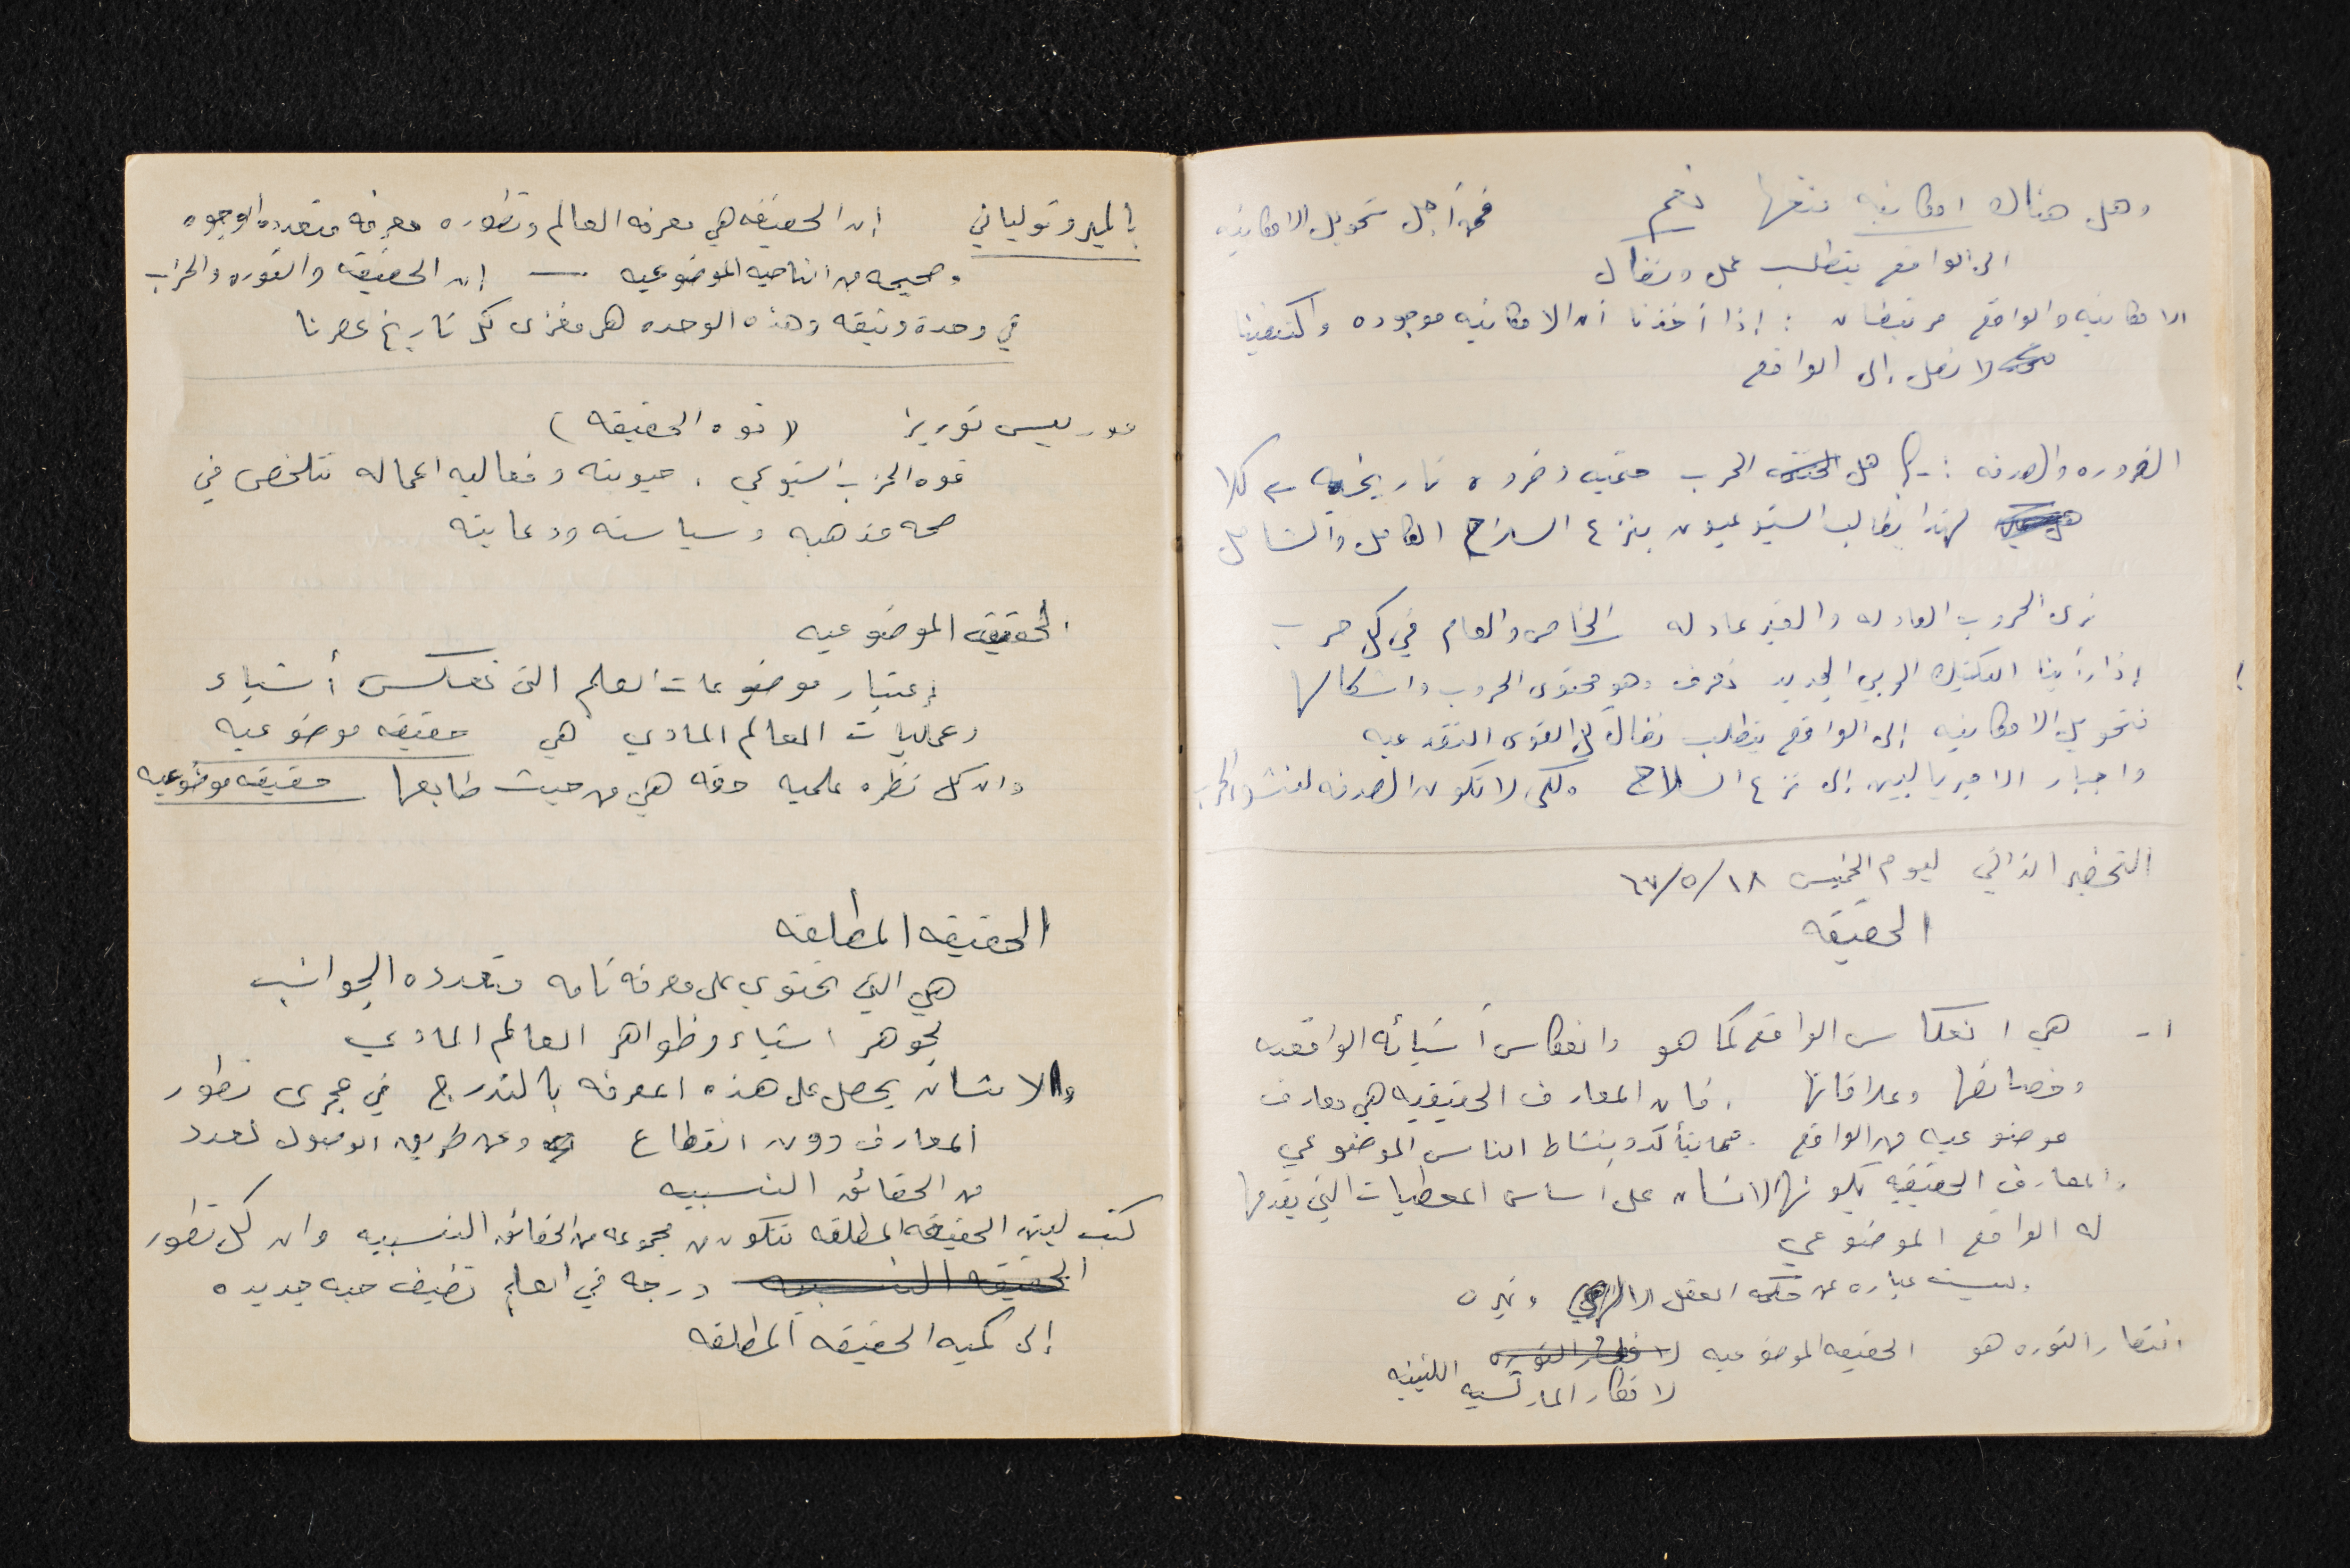 وهل هناك امكانيه منعها نعم فمن أجل تحويل الامكانيه
الى الواقع يتطلب عمل ونضال
الامكانيه والواقع مرتبطان : إذا أخذنا أن الامكانيه موجوده واكتفينا
لا نصل إلى الواقع
الضروره والصدفه :- هل الحرب حتميه وضروره تاريخيه ؟ كلا
لهذا يطالب الشيوعيون بنزع السلاح الكامل والشامل
نرى الحروب العادله والغير عادله الخاص والعام في كل حرب
إذا رأينا التكتيك الحربي الجديد نعرف وهو محتوى الحروب واشكالها
فتحويل الامكانيه إلى الواقع يتطلب نضال كل القوى التقدميه
واجبار الامبرياليين إلى نزع السلاح ولكي لا تكون الصدفه لنشوء الحرب
التحضير الذاتي ليوم الخميس ١٨/٥/٦٧
الحقيقه
١- هي انعكاس الواقع كما هو وانعكاس أشيائه الواقعيه
وخصائصها وعلاقاتها . فان المعارف الحقيقيه هي معارف
موضوعيه من الواقع . مما يتأكد بنشاط الناس الموضوعي
والمعارف الحقيقيه يكونها الانسان على اساس المعطيات التي يقدمها
له الواقع الموضوعي
وليست عباره عن حكمه العقل الالهي
انتصار الثوره هو الحقيقه الموضوعيه
لافكار الماركسيه اللينينيه
بالميرو تولياتي ان الحقيقه هي معرفه العالم وتطوره معرفه متعدده الوجوه
وصحيحه من الناحيه الموضوعيه — إن الحقيقه والثوره والحزب
في وحدة وثيقه وهذه الوحده هي مغزى كل تاريخ عصرنا
موريس توريز ( قوه الحقيقه )
قوه الحزب الشيوعي . حيويته وفعاليه اعماله تتلخص في
صحه مذهبه وسياسته ودعايته
الحقيقه الموضوعيه
إعتبار موضوعات العلم التي تعكس أشياء
وعمليات العالم المادي هي حقيقه موضوعيه
وان كل نظره علميه حقه هي من حيث طابعها حقيقه موضوعيه
الحقيقه المطلقه
هي التي تحتوي على معرفه تامه ومتعدده الجوانب
لجوهر اشياء وظواهر العالم المادي
والانسان يحصل على هذه المعرفه بالتدرج في مجرى تطور
المعارف دون انقطاع وعن طريق الوصول لعدد
من الحقائق النسبيه
كتب لينين الحقيقه المطلقه تتكون من مجموعه من الحقائق النسبيه وان كل تطور
الحقيقه النسبيه درجه في العلم تضيف حبه جديده
إلى كميه الحقيقه المطلقه